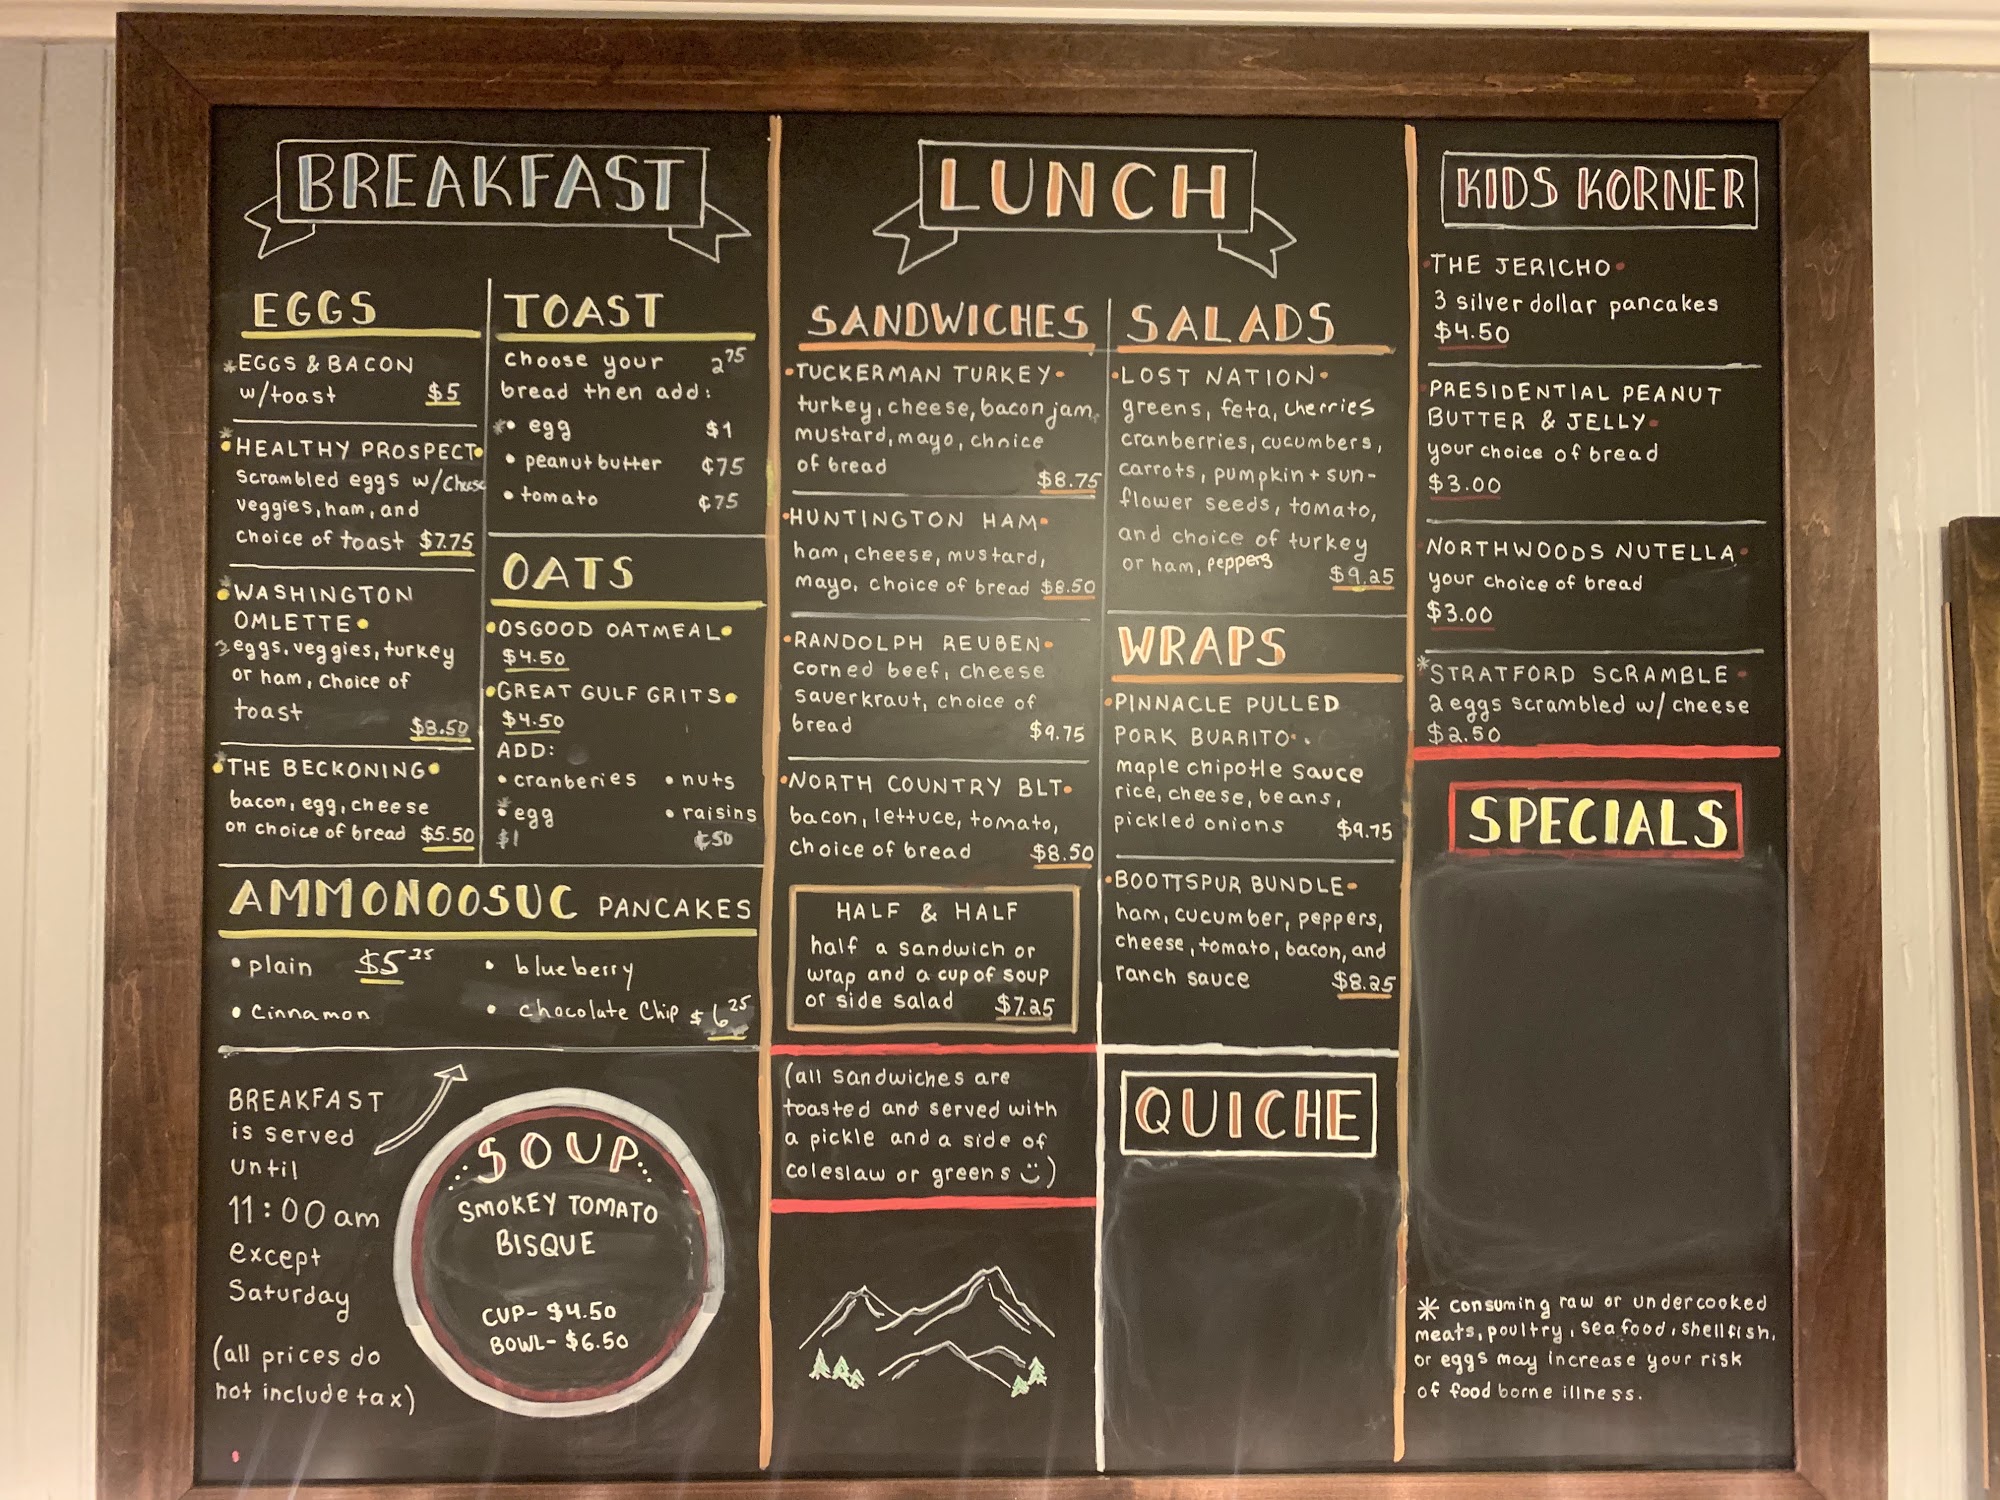 BREAKFAST
EGGS
*EGGS & BACON
w/toast $5
*HEALTHY PROSPECT
scrambled eggs w/cheese
veggies, ham, and
choice of toast $7.75
*WASHINGTON
OMLETTE
3 eggs, veggies, turkey
or ham, choice of
toast
$8.50
*THE BECKONING
bacon, egg, cheese
on choice of bread $5.50
TOAST
choose your 2 75
bread then add:
*• egg $1
• peanut butter ¢75
• tomato ¢75
OATS
OSGOOD OATMEAL
$4.50
GREAT GULF GRITS
$4.50
ADD:
• cranberies • nuts
*• egg • raisins
$1 ¢50
AMMONOOSUC PANCAKES
• plain $5 25 • blueberry
• Cinnamon • chocolate Chip $6 25
BREAKFAST
is served
until
11:00 am
except
Saturday
(all prices do
not include tax)
SOUP
SMOKEY TOMATO
BISQUE
CUP- $4.50
BOWL- $6.50
LUNCH
SANDWICHES
•TUCKERMAN TURKEY•
turkey, cheese, bacon jam,
mustard, mayo, choice
of bread
$8.75
•HUNTINGTON HAM•
ham, cheese, mustard,
mayo, choice of bread $8.50
•RANDOLPH REUBEN•
corned beef, cheese
sauerkraut, choice of
bread $9.75
•NORTH COUNTRY BLT•
bacon, lettuce, tomato,
choice of bread $8.50
HALF & HALF
half a sandwich or
wrap and a cup of soup
or side salad $7.25
(all sandwiches are
toasted and served with
a pickle and a side of
coleslaw or greens )
SALADS
•LOST NATION•
greens, feta, cherries
cranberries, cucumbers,
carrots, pumpkin + sun-
flower seeds, tomato,
and choice of turkey
or ham, peppers $9.25
WRAPS
•PINNACLE PULLED
PORK BURRITO•
maple chipotle sauce
rice, cheese, beans,
pickled onions $9.75
•BOOTTSPUR BUNDLE•
ham, cucumber, peppers,
cheese, tomato, bacon, and
ranch sauce $8.25
QUICHE
KIDS KORNER
•THE JERICHO•
3 silver dollar pancakes
$4.50
PRESIDENTIAL PEANUT
BUTTER & JELLY•
your choice of bread
$3.00
NORTHWOODS NUTELLA•
your choice of bread
$3.00
*STRATFORD SCRAMBLE•
2 eggs scrambled w/ cheese
$2.50
SPECIALS
* consuming raw or undercooked
meats, poultry, seafood, shellfish,
or eggs may increase your risk
of food borne illness.